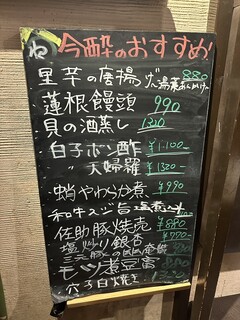 今酔のおすすめ!
里芋の唐揚 880
蓮根饅頭 990
貝の酒蒸し 1320
白子ポン酢 ¥1100
〃 天婦羅 ¥1320
蛸やわらか煮 ¥990
和牛スジ旨塩煮
佐助豚焼売 ¥880
塩炒り銀杏 ¥770
モツ煮豆富
穴子白焼き 1320